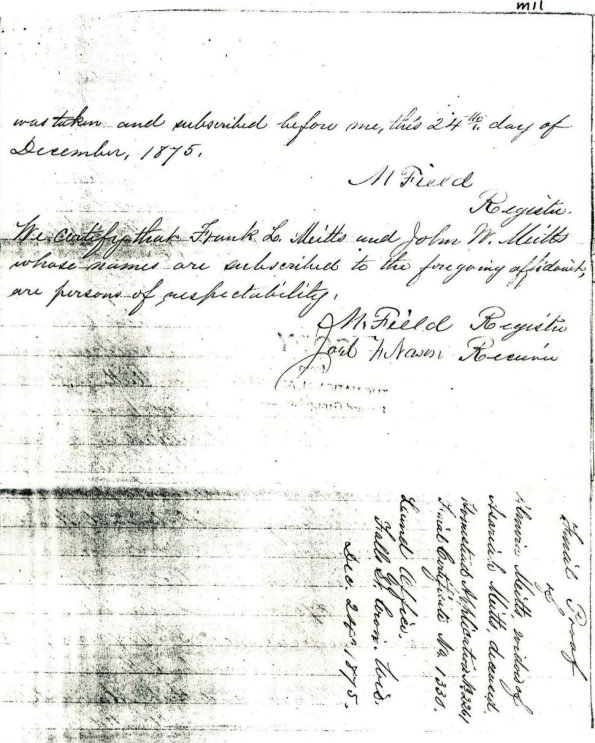 mil
was taken and subscribed before me, this 24th. day of
December, 1875.
M Field
Register.
We certify that Frank L. Meitts and John W. Meitts
whose names are subscribed to the foregoing affidavit,
are persons of respectability.
M. Field Register
Joel F. Nason Receiver
Final Proof
of
Meitts, widow of
Meitts, deceased.
Homestead Application No.
Final Certificate No. 1330.
Land Office,
Falls St. Croix. Wis.
Dec. 24th 1875.